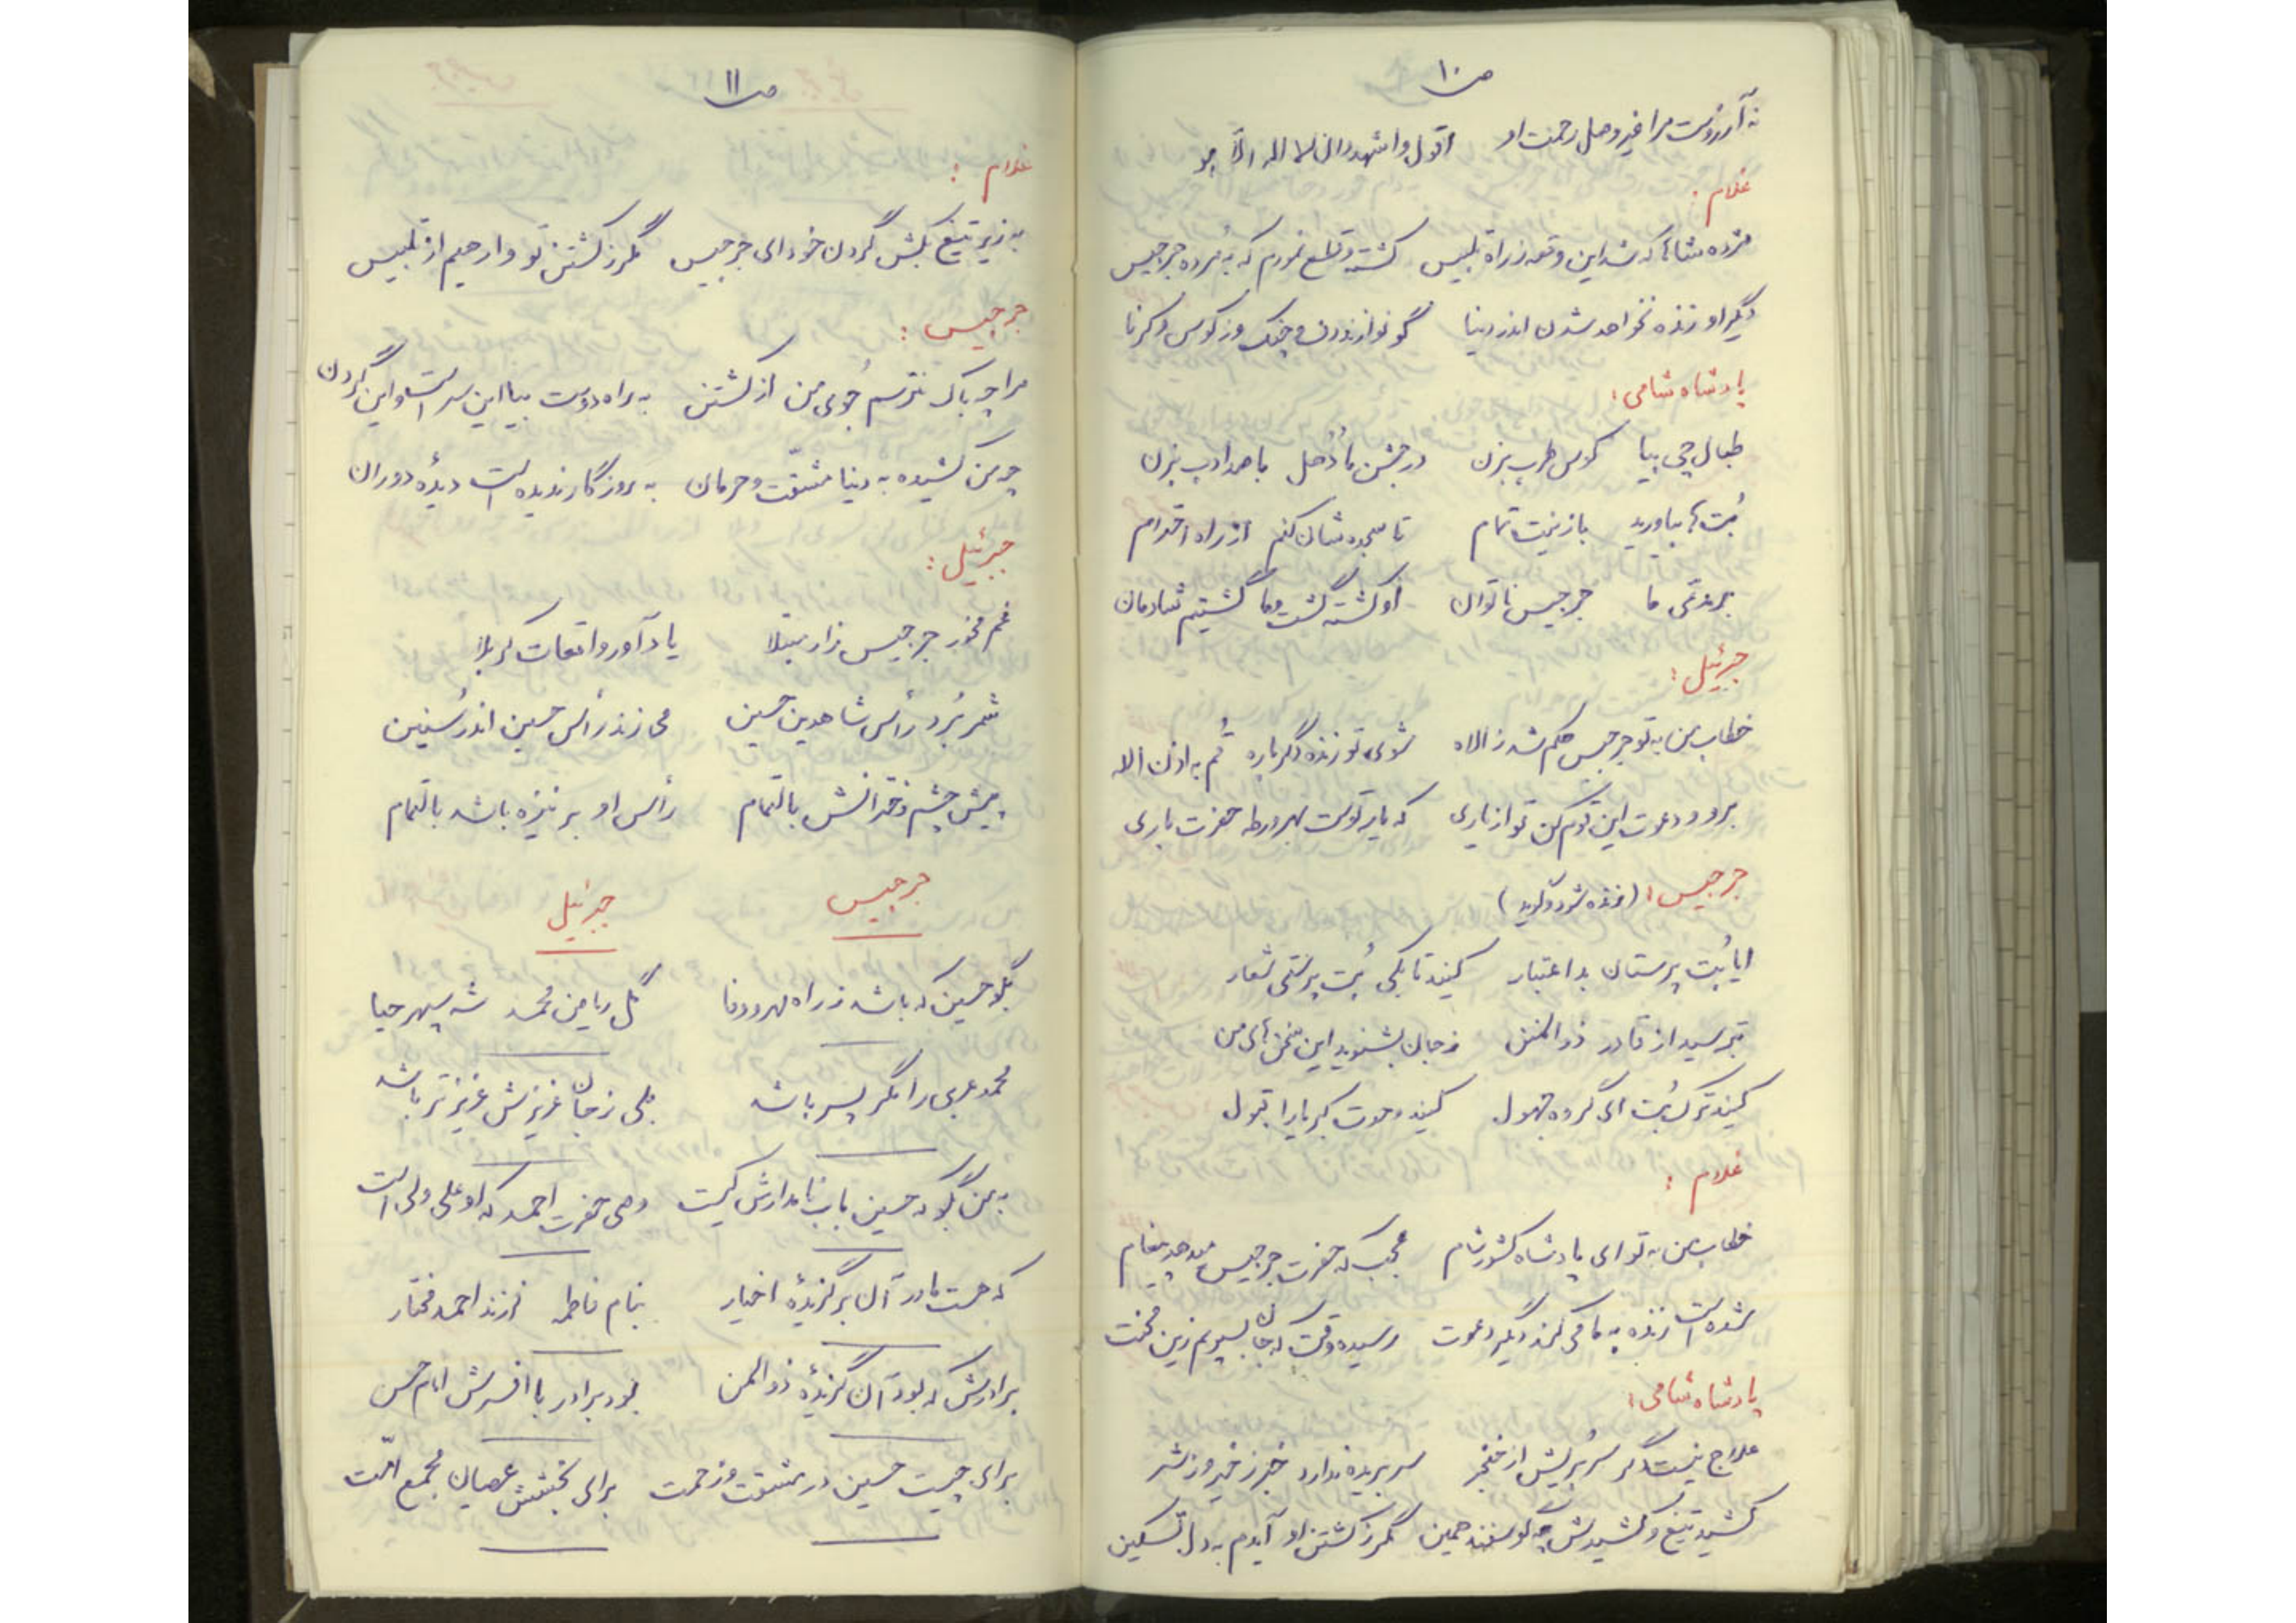 ص ۱۰
نه آرزوست مرا غیر وصل رحمت او اقول و اشهد ان لا اله الّا هو
غلام :
مژده شاها که شد این وقعه ز راه تلبیس کشته و قلع نمودم که به مرده جرجیس
دیگر او زنده نخواهد شدن اندر دنیا گو نوازند دف و چنگ و ز کوس و کرنا
پادشاه شامی :
طبال چی بیا کوس طرب بزن در جشن ما دُهُل با صد ادب بزن
بُت‌ها بیاورید با زینت تمام تا سجده‌شان کنم از راه احترام
بر مدعی ما جرجیس ناتوان او کشته گشت و ما گشتیم شادمان
جبرئیل :
خطاب من به تو جرجیس حکم شد ز الاه شوی تو زنده دگرباره قُم به اذن الاه
برو و دعوت این قوم کن تو از یاری که یار توست بهر ورطه حضرت باری
جرجیس : (زنده شود و گوید)
ایا بُت پرستان بد اعتبار کنید تا بکی بُت پرستی شعار
بترسید از قادر ذوالمنن ز جان بشنوید این سخن‌های من
کنید ترک بُت ای گروه جهول کنید دعوت کبریا را قبول
غلام :
خطاب من به تو ای پادشاه کشور شام عجب که حضرت جرجیس میدهد پیغام
شده است زنده به ما می‌کند دیگر دعوت رسیده وقت که جان بسپریم زین محنت
پادشاه شامی :
علاج نیست مگر سر بُریش از خنجر سر بریده ندارد خبر ز خیر و ز شر
کشید تیغ و کشیدش چه گوسفند همین مگر ز کشتن او آیدم به دل تسکین
ص ۱۱
غلام :
به زیر تیغ بکش گردن خود ای جرجیس مگر ز کشتن تو وارهیم از تلبیس
جرجیس :
مرا چه باک نترسم جُوی من از کشتن به راه دوست بیا این سر است و این گردن
چو من کشیده به دنیا مشقّت و حرمان به روزگار ندیده است دیدهٔ دوران
جبرئیل :
غم مخور جرجیس زار مبتلا یاد آور واقعات کربلا
شمر بُرد رأس شاه دین حسین می‌زند رأس حسین اندر سُنین
پیش چشم دخترانش بالتمام رأس او بر نیزه باشد بالتمام
جرجیس جبرئیل
بگو حسین که باشد ز راه مهر و وفا گل ریاض محمد شه سپهر حیا
محمد عربی را مگر پسر باشد بلی ز جان عزیزش عزیزتر باشد
به من بگو که حسین باب نامدارش کیست وصی حضرت احمد که او علی ولی است
که هست مادر آن برگزیدهٔ اخیار بنام فاطمه فرزند احمد مختار
برادرش که بود آن گزیدهٔ ذوالمن بود برادر با افسرش امام حسن
برای چیست حسین در مشقت و زحمت برای بخشش عصیان مجمع امّت